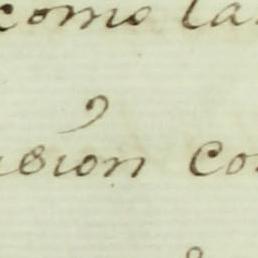 como la
sion co